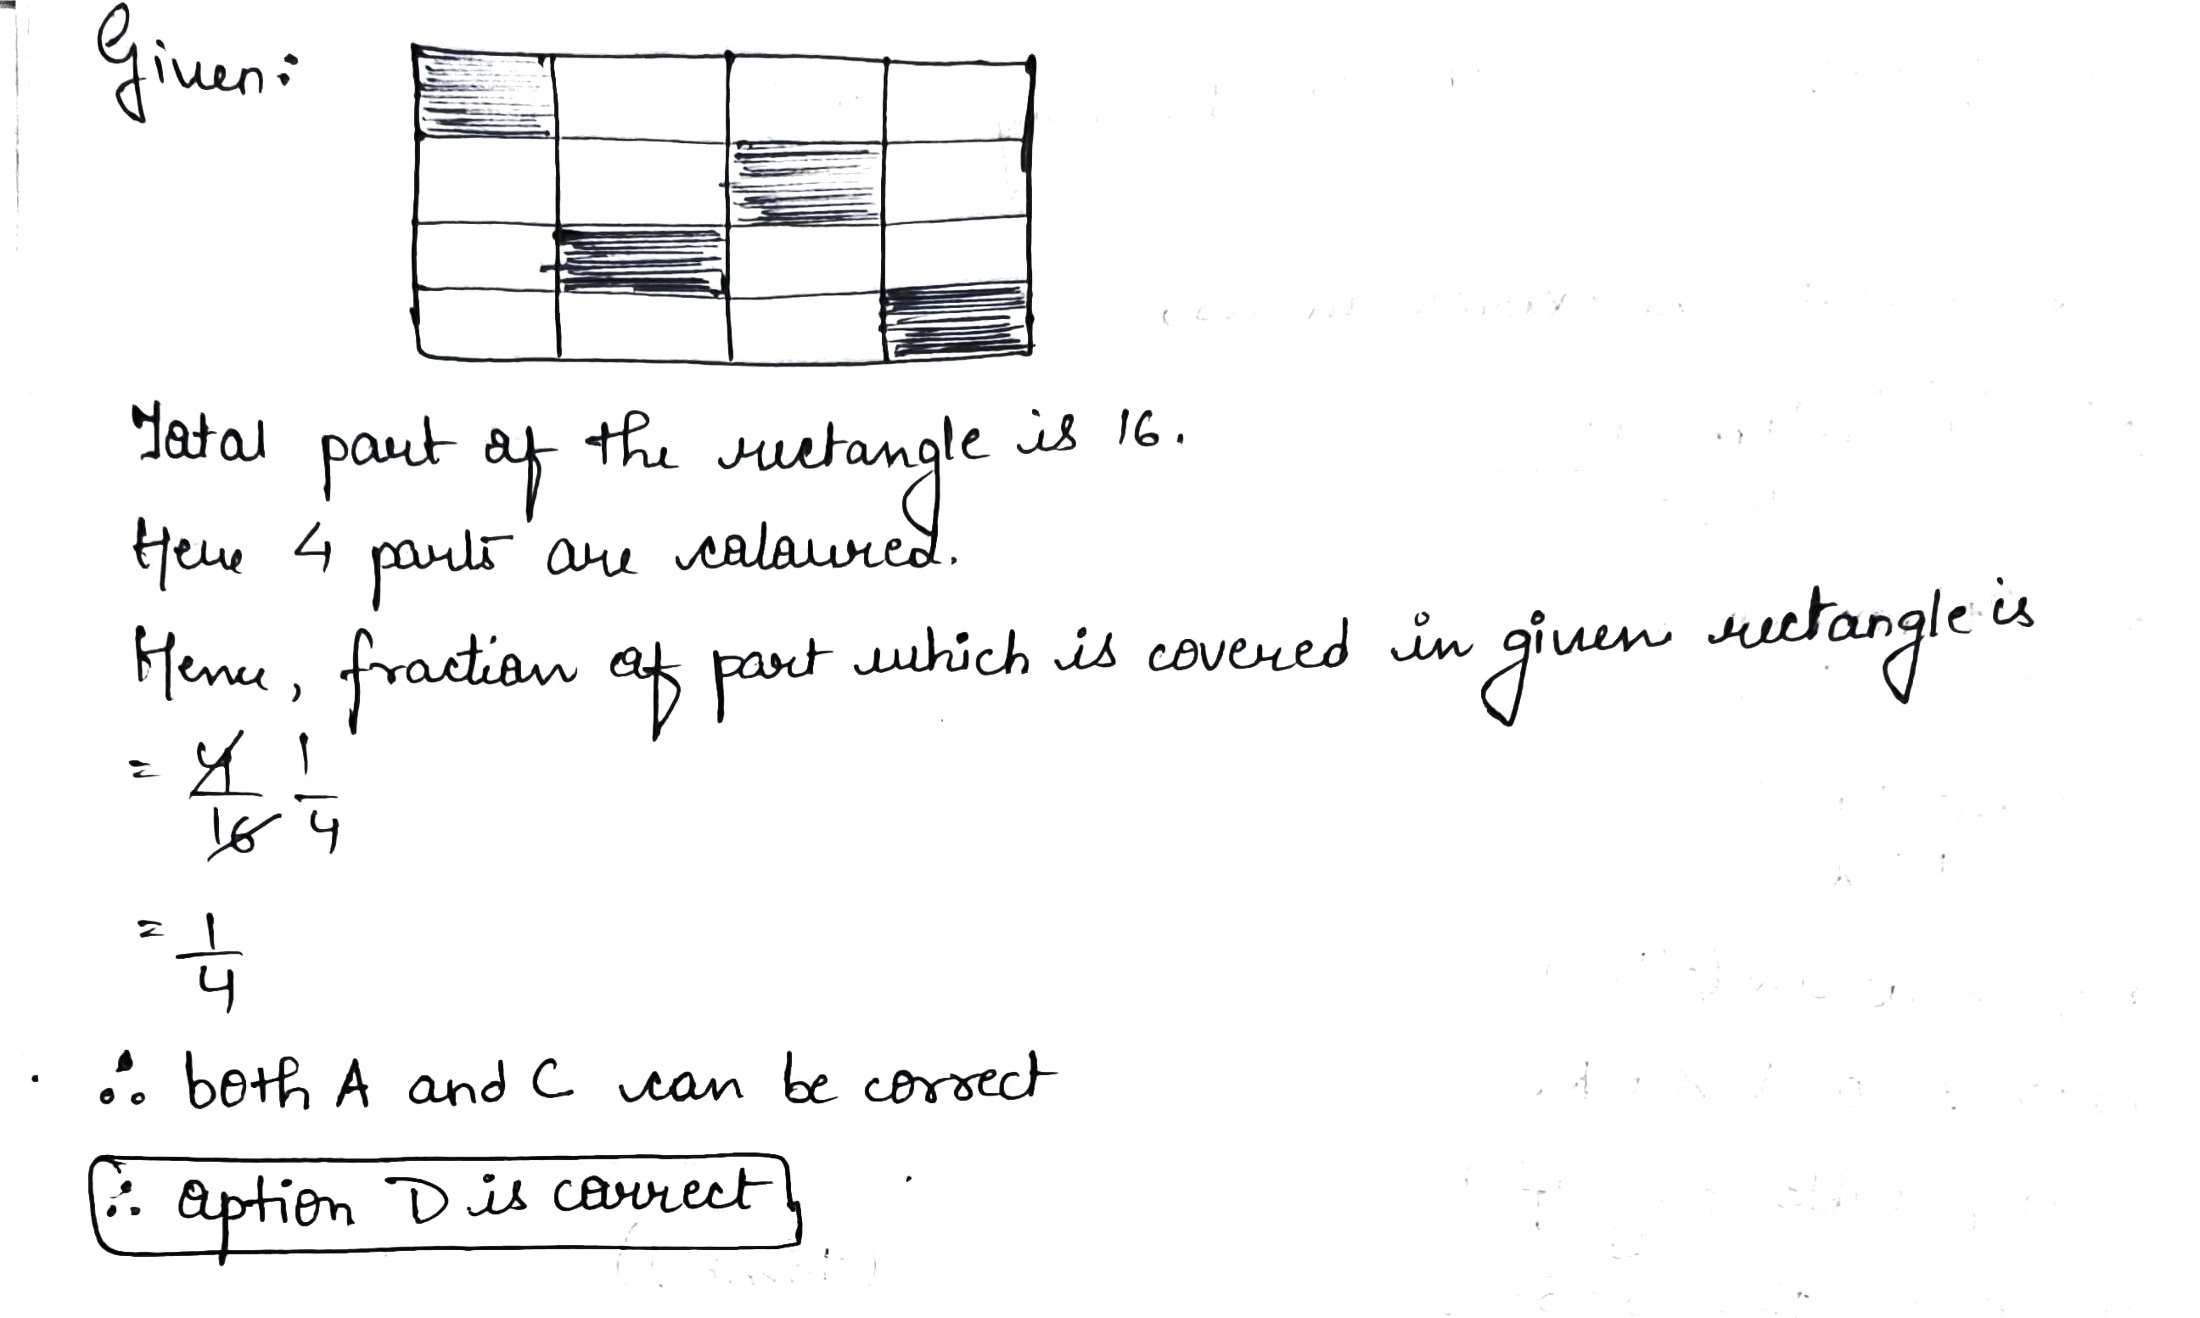 Given:
Total part of the rectangle is 16.
Here 4 parts are coloured.
Hence, fraction of part which is covered in given rectangle is
= 4/16 1/4
= 1/4
∴ both A and C can be correct
∴ option D is correct